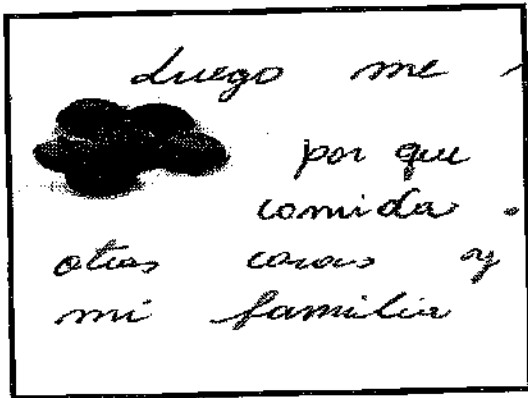 Luego me
por que
comida .
otras casas y
mi familia